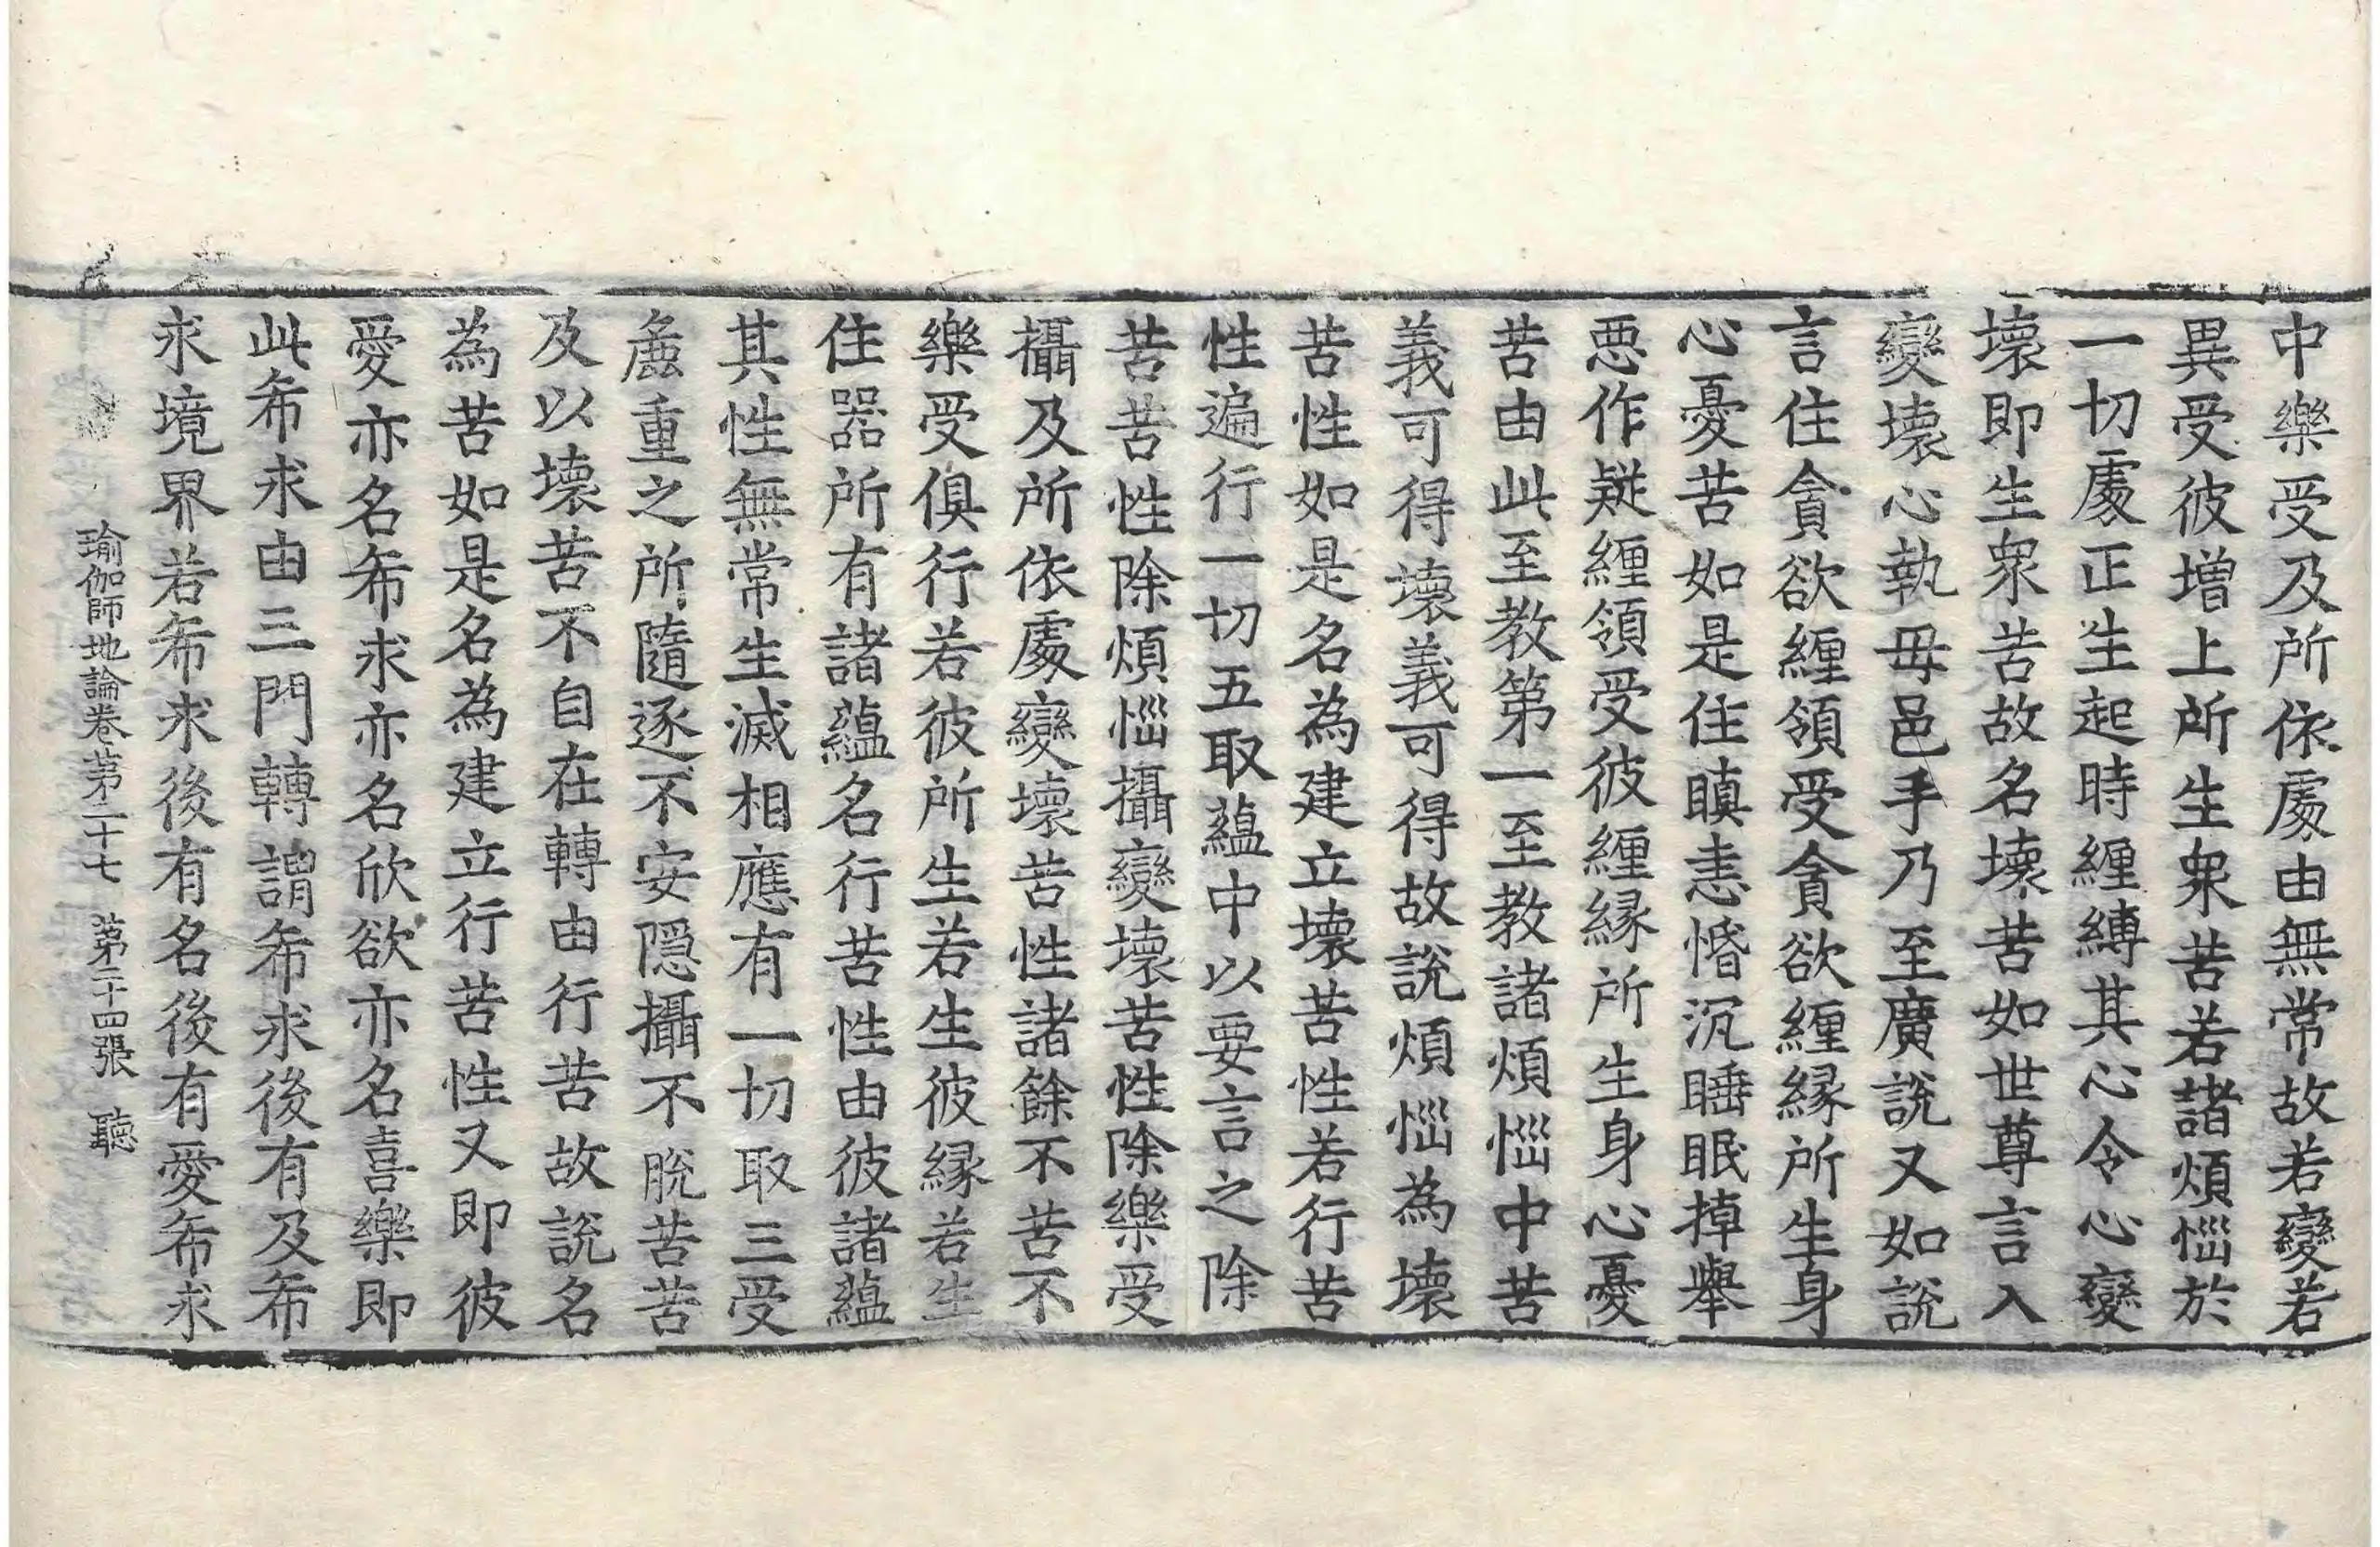 中樂受及所依處由無常故若變若
異受彼增上所生衆苦若諸煩惱於
一切處正生起時纏縛其心令心變
壞即生衆苦故名壞苦如世尊言入
變壞心執母邑手乃至廣說又如說
言住貪欲纏領受貪欲纏緣所生身
心憂苦如是住瞋恚惛沉睡眠掉舉
惡作疑纏領受彼纏緣所生身心憂
苦由此至教第一至教諸煩惱中苦
義可得壞義可得故說煩惱為壞
苦性如是名為建立壞苦性若行苦
性遍行一切五取蘊中以要言之除
苦苦性除煩惱攝變壞苦性除樂受
攝及所依處變壞苦性諸餘不苦不
樂受俱行若彼所生若生彼緣若生
住器所有諸蘊名行苦性由彼諸蘊
其性無常生滅相應有一切取三受
麁重之所隨逐不安隱攝不脫苦苦
及以壞苦不自在轉由行苦故說名
為苦如是名為建立行苦性又即彼
愛亦名希求亦名欣欲亦名喜樂即
此希求由三門轉謂希求後有及希
求境界若希求後有名後有愛希求
瑜伽師地論卷第二十七 第二十四張 聽